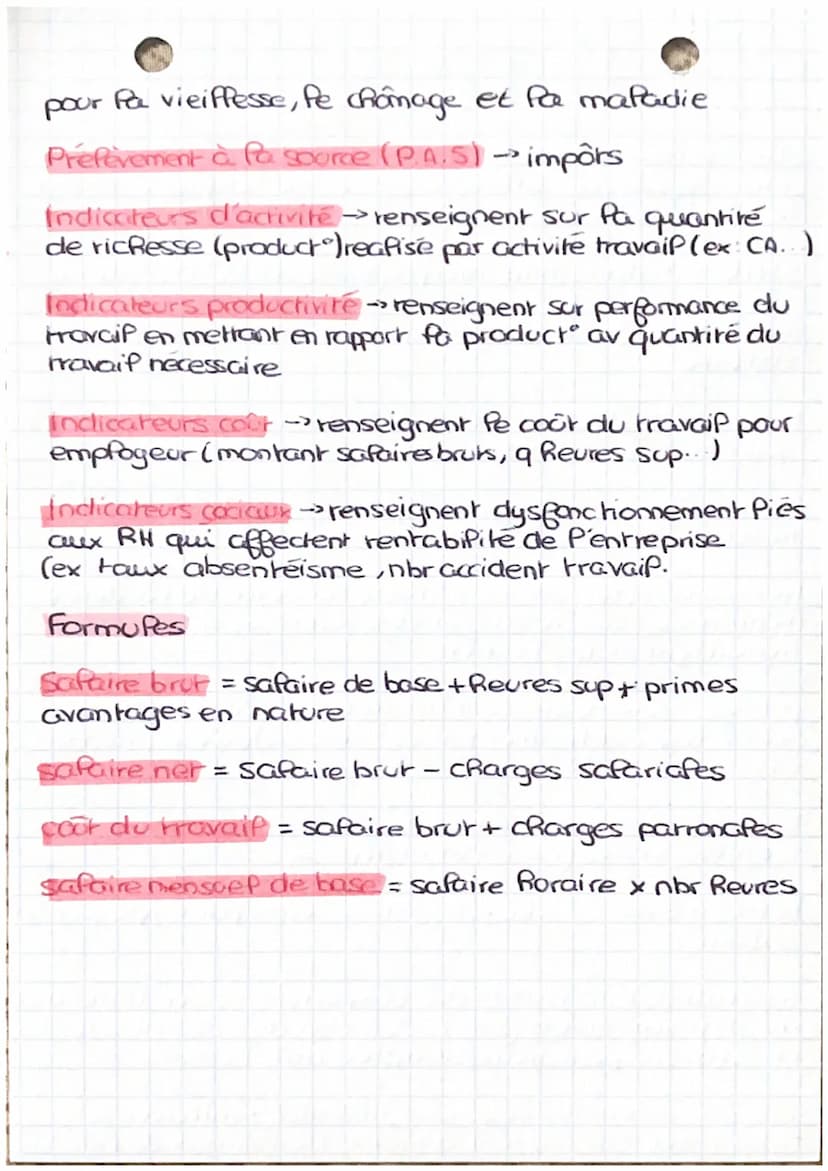 pour la vieillesse, le chômage et la maladie
Prélèvement à la source (P.A.S) → impôrs
Indicateurs d'activité → renseignent sur la quantité
de richesse (product°) realisié par activité travail (ex: CA...)
Indicateurs productivité → renseignent sur performance du
travail en mettant en rapport la product° av quantité du
travail nécessaire
Indicateurs coût → renseignent le coût du travail pour
employeur (montant salaires bruts, q heures sup...)
Indicateurs sociaux → renseignent dysfonctionnement liés
aux RH qui affectent rentabilité de l'entreprise
(ex taux absentéisme, nbr accident travail.
Formules
Salaire brut = salaire de base + heures sup + primes
avantages en nature
salaire net = salaire brut - charges salariales
coût du travail = salaire brut + charges patronales
salaire mensuel de base = salaire horaire x nbr heures